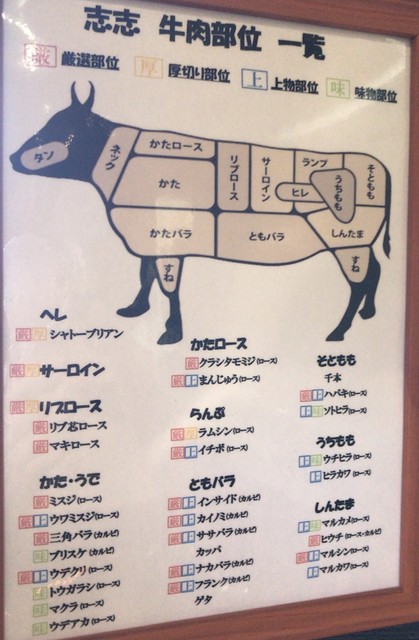 志志 牛肉部位 一覧
厳 厳選部位 厚 厚切り部位 上 上物部位 味 味物部位
タン
ネック
かたロース
かた
かたバラ
すね
リブロース
サーロイン
ヒレ
ランプ
うちもも
そともも
ともバラ
しんたま
すね
ヘレ
厳厚シャトーブリアン
厳厚サーロイン
厳厚リブロース
厳リブ芯ロース
厳マキロース
かた・うで
厳ミスジ(ロース)
厳上ウワミスジ(ロース)
厳三角バラ(カルビ)
味ブリスケ(カルビ)
厳上ウデクリ(ロース)
味トウガラシ(ロース)
味マクラ(ロース)
味ウデアカ(ロース)
かたロース
厳クラシタモミジ(ロース)
厳上まんじゅう(ロース)
らんぷ
厳厚ラムシン(ロース)
厳上イチボ(ロース)
ともバラ
厳上インサイド(カルビ)
厳上カイノミ(カルビ)
厳上ササバラ(カルビ)
カッパ
厳上ナカバラ(カルビ)
厳上フランク(カルビ)
ゲタ
そともも
千本
厳上ハバキ(ロース)
上味ソトヒラ(ロース)
うちもも
上味ウチヒラ(ロース)
上ヒラカワ(ロース)
しんたま
上味マルカメ(ロース)
厳ヒウチ(ロース・カルビ)
厳上マルシン(ロース)
上マルカワ(ロース)